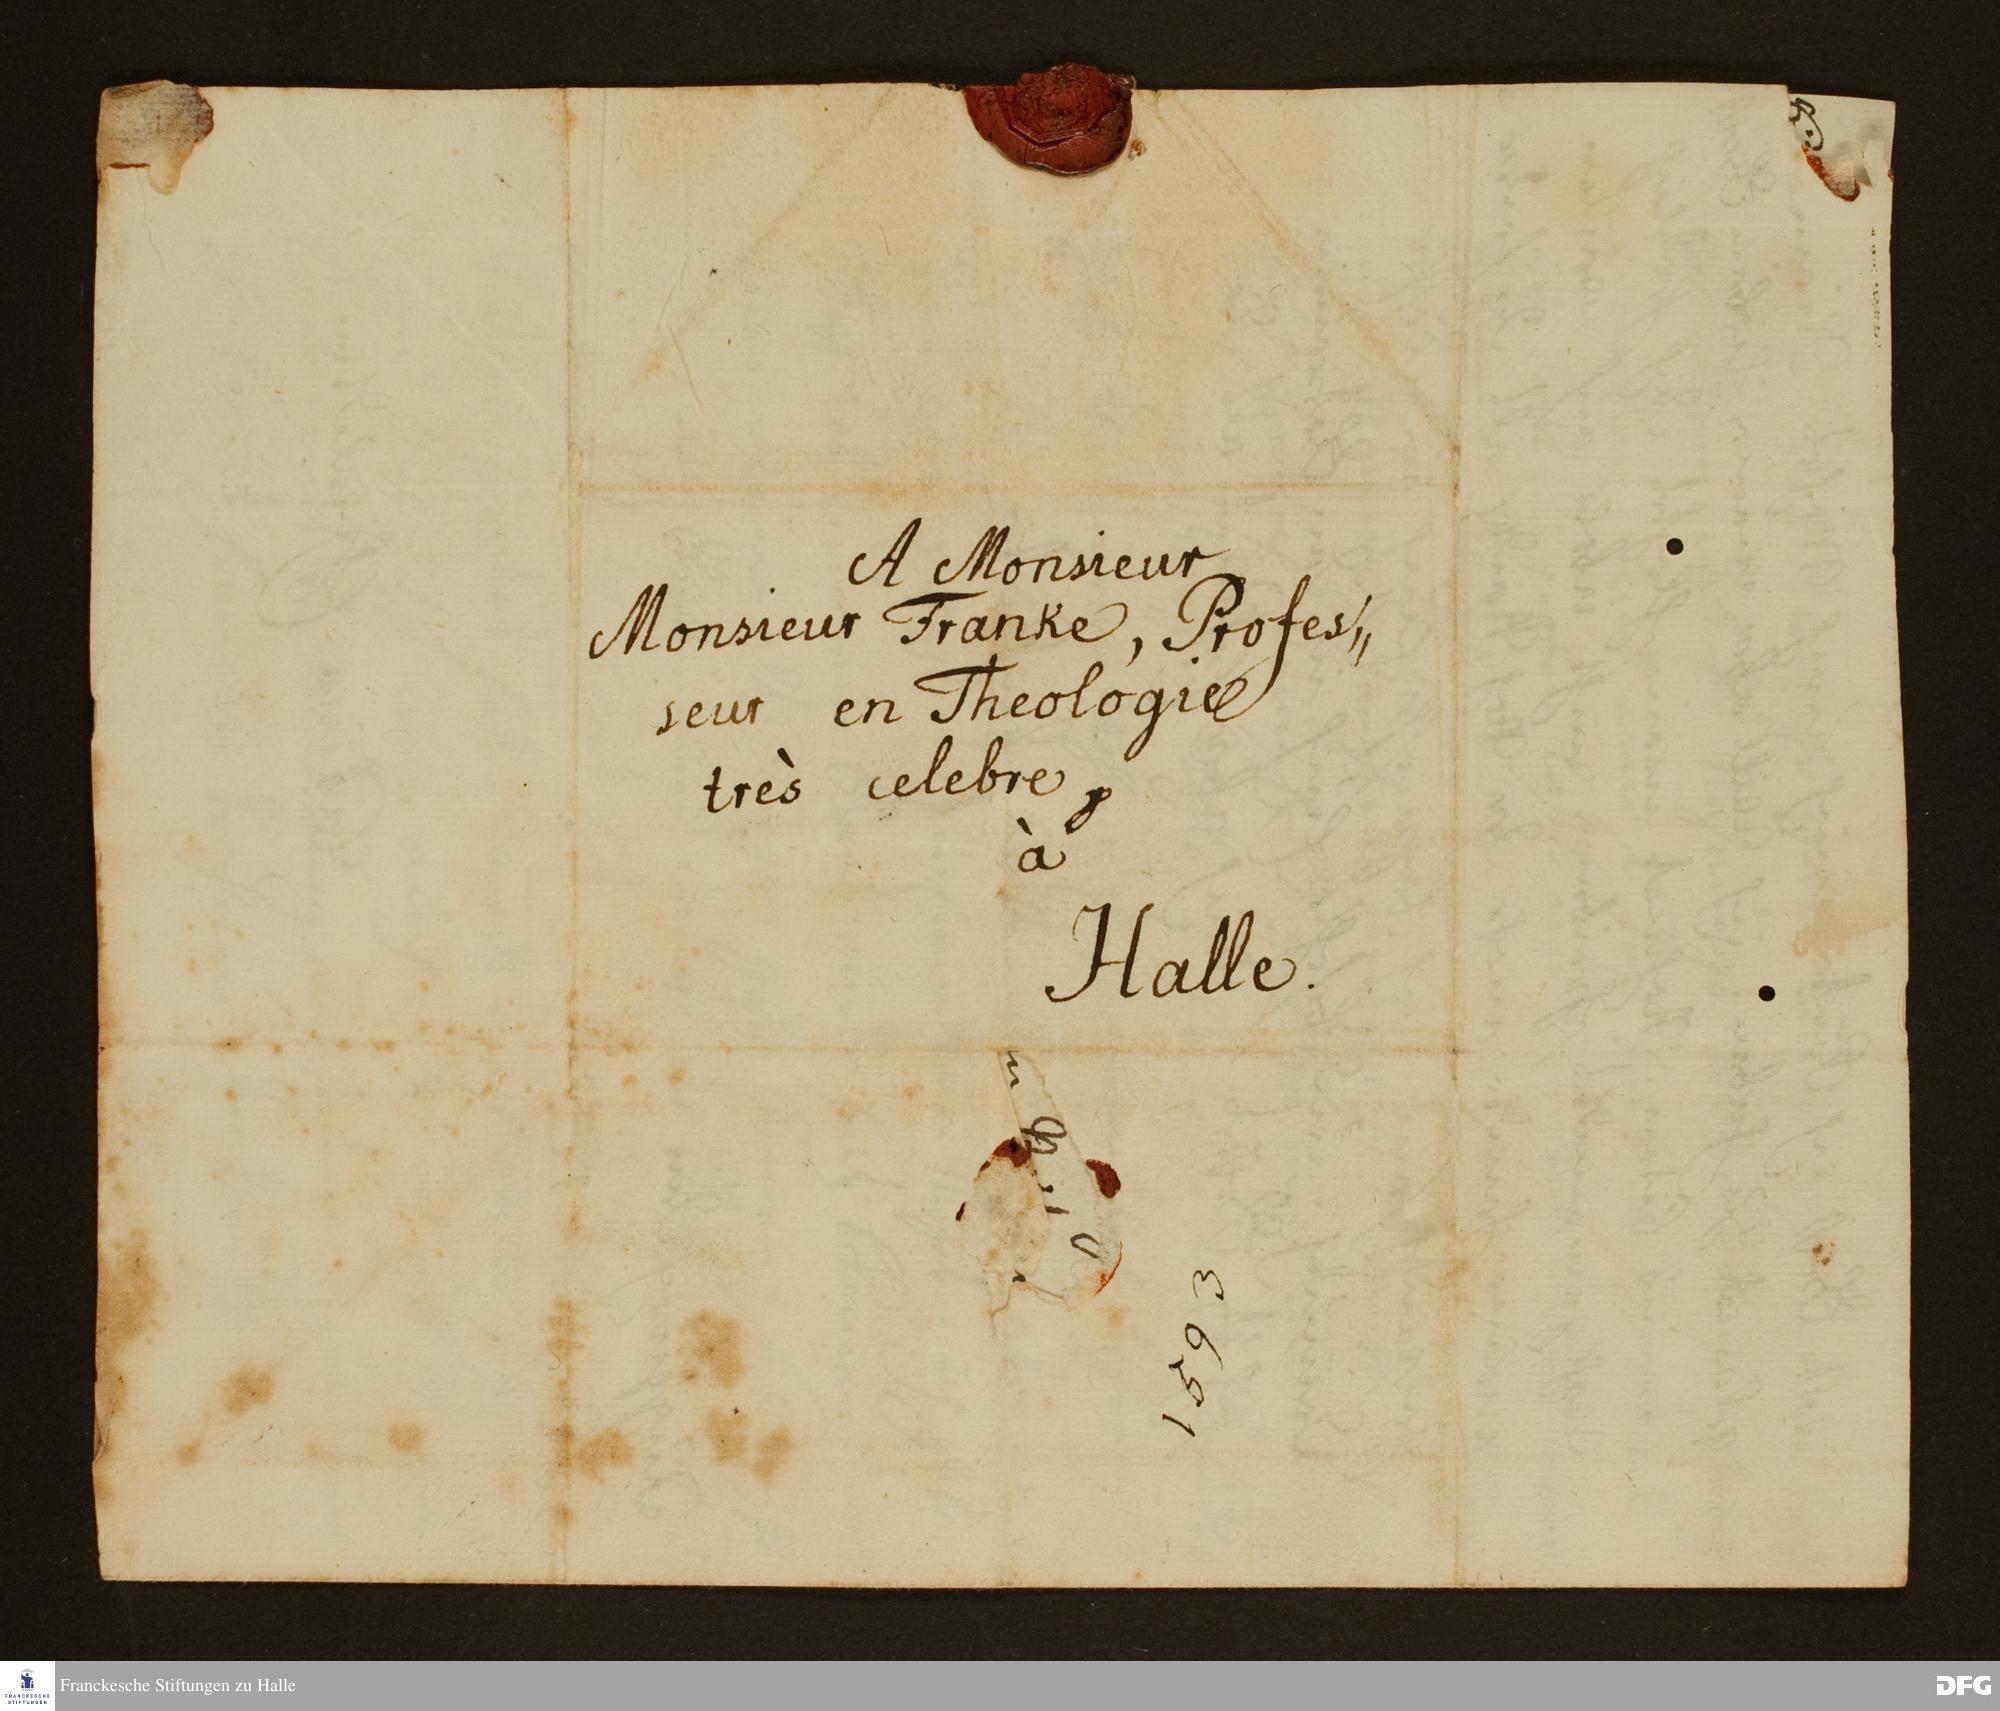 A Monsieur
Monsieur Franke, Profes,,
seur en Theologie
très celebre,
à
Halle.
1593
Franckesche Stiftungen zu Halle
FRANCKESCHE
STIFTUNGEN
DFG